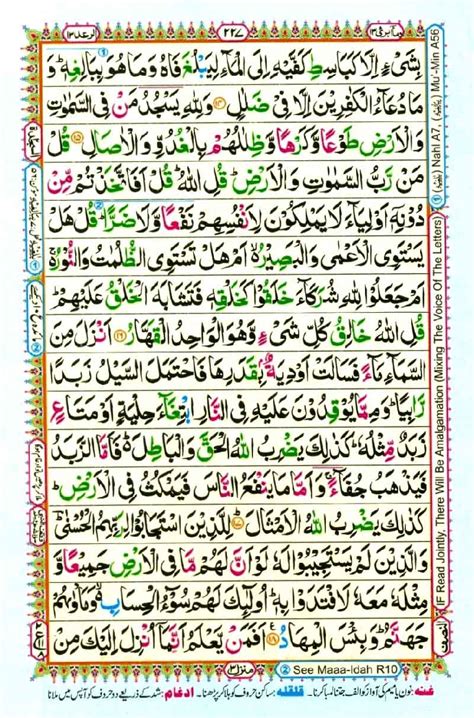 وما ابرئ ١٣
٢٢٧
الرعد ١٣
بِشَیْءٍ اِلَّا كَبَاسِطِ كَفَّیْهِ اِلَى الْمَآءِ لِیَبْلُغَ فَاهُ وَمَا هُوَ بِبَالِغِهٖ ؕ وَ
مَا دُعَآءُ الْكٰفِرِیْنَ اِلَّا فِیْ ضَلٰلٍ ۝۱۴ وَلِلّٰهِ یَسْجُدُ مَنْ فِی السَّمٰوٰتِ
وَالْاَرْضِ طَوْعًا وَّكَرْهًا وَّظِلٰلُهُمْ بِالْغُدُوِّ وَالْاٰصَالِ ۝۱۵ قُلْ
مَنْ رَّبُّ السَّمٰوٰتِ وَالْاَرْضِ ؕ قُلِ اللّٰهُ ؕ قُلْ اَفَاتَّخَذْتُمْ مِّنْ
دُوْنِهٖۤ اَوْلِیَآءَ لَا یَمْلِكُوْنَ لِاَنْفُسِهِمْ نَفْعًا وَّلَا ضَرًّا ؕ قُلْ هَلْ
یَسْتَوِی الْاَعْمٰى وَالْبَصِیْرُ ۙ اَمْ هَلْ تَسْتَوِی الظُّلُمٰتُ وَالنُّوْرُ ۚ
اَمْ جَعَلُوْا لِلّٰهِ شُرَكَآءَ خَلَقُوْا كَخَلْقِهٖ فَتَشَابَهَ الْخَلْقُ عَلَیْهِمْ ؕ
قُلِ اللّٰهُ خَالِقُ كُلِّ شَیْءٍ وَّهُوَ الْوَاحِدُ الْقَهَّارُ ۝۱۶ اَنْزَلَ مِنَ
السَّمَآءِ مَآءً فَسَالَتْ اَوْدِیَةٌۢ بِقَدَرِهَا فَاحْتَمَلَ السَّیْلُ زَبَدًا
رَّابِیًا ؕ وَمِمَّا یُوْقِدُوْنَ عَلَیْهِ فِی النَّارِ ابْتِغَآءَ حِلْیَةٍ اَوْ مَتَاعٍ
زَبَدٌ مِّثْلُهٗ ؕ كَذٰلِكَ یَضْرِبُ اللّٰهُ الْحَقَّ وَالْبَاطِلَ ؕ۬ فَاَمَّا الزَّبَدُ
فَیَذْهَبُ جُفَآءً ۚ وَاَمَّا مَا یَنْفَعُ النَّاسَ فَیَمْكُثُ فِی الْاَرْضِ ؕ
كَذٰلِكَ یَضْرِبُ اللّٰهُ الْاَمْثَالَ ۝۱۷ لِلَّذِیْنَ اسْتَجَابُوْا لِرَبِّهِمُ الْحُسْنٰى ؔؕ
وَالَّذِیْنَ لَمْ یَسْتَجِیْبُوْا لَهٗ لَوْ اَنَّ لَهُمْ مَّا فِی الْاَرْضِ جَمِیْعًا وَّ
مِثْلَهٗ مَعَهٗ لَافْتَدَوْا بِهٖ ؕ اُولٰٓىِٕكَ لَهُمْ سُوْٓءُ الْحِسَابِ ۙ۬ وَمَاْوٰىهُمْ
جَهَنَّمُ ؕ وَبِئْسَ الْمِهَادُ ۝۱۸ اَفَمَنْ یَّعْلَمُ اَنَّمَاۤ اُنْزِلَ اِلَیْكَ
منزل ۳
② See Maaa-Idah R10
غنه: نون یا میم کی آواز کو الف جتنا لمبا کرنا۔ قلقله: ساکن حروف کو ہلا کر پڑھنا۔ ادغام: شد کے ذریعے دو حروف کو آپس میں ملانا
Nahl A7, Mu'-Min A56
① (IF Read Jointly, There Will Be Amalgamation (Mixing The Voice Of The Letters)
السجدة
النصف